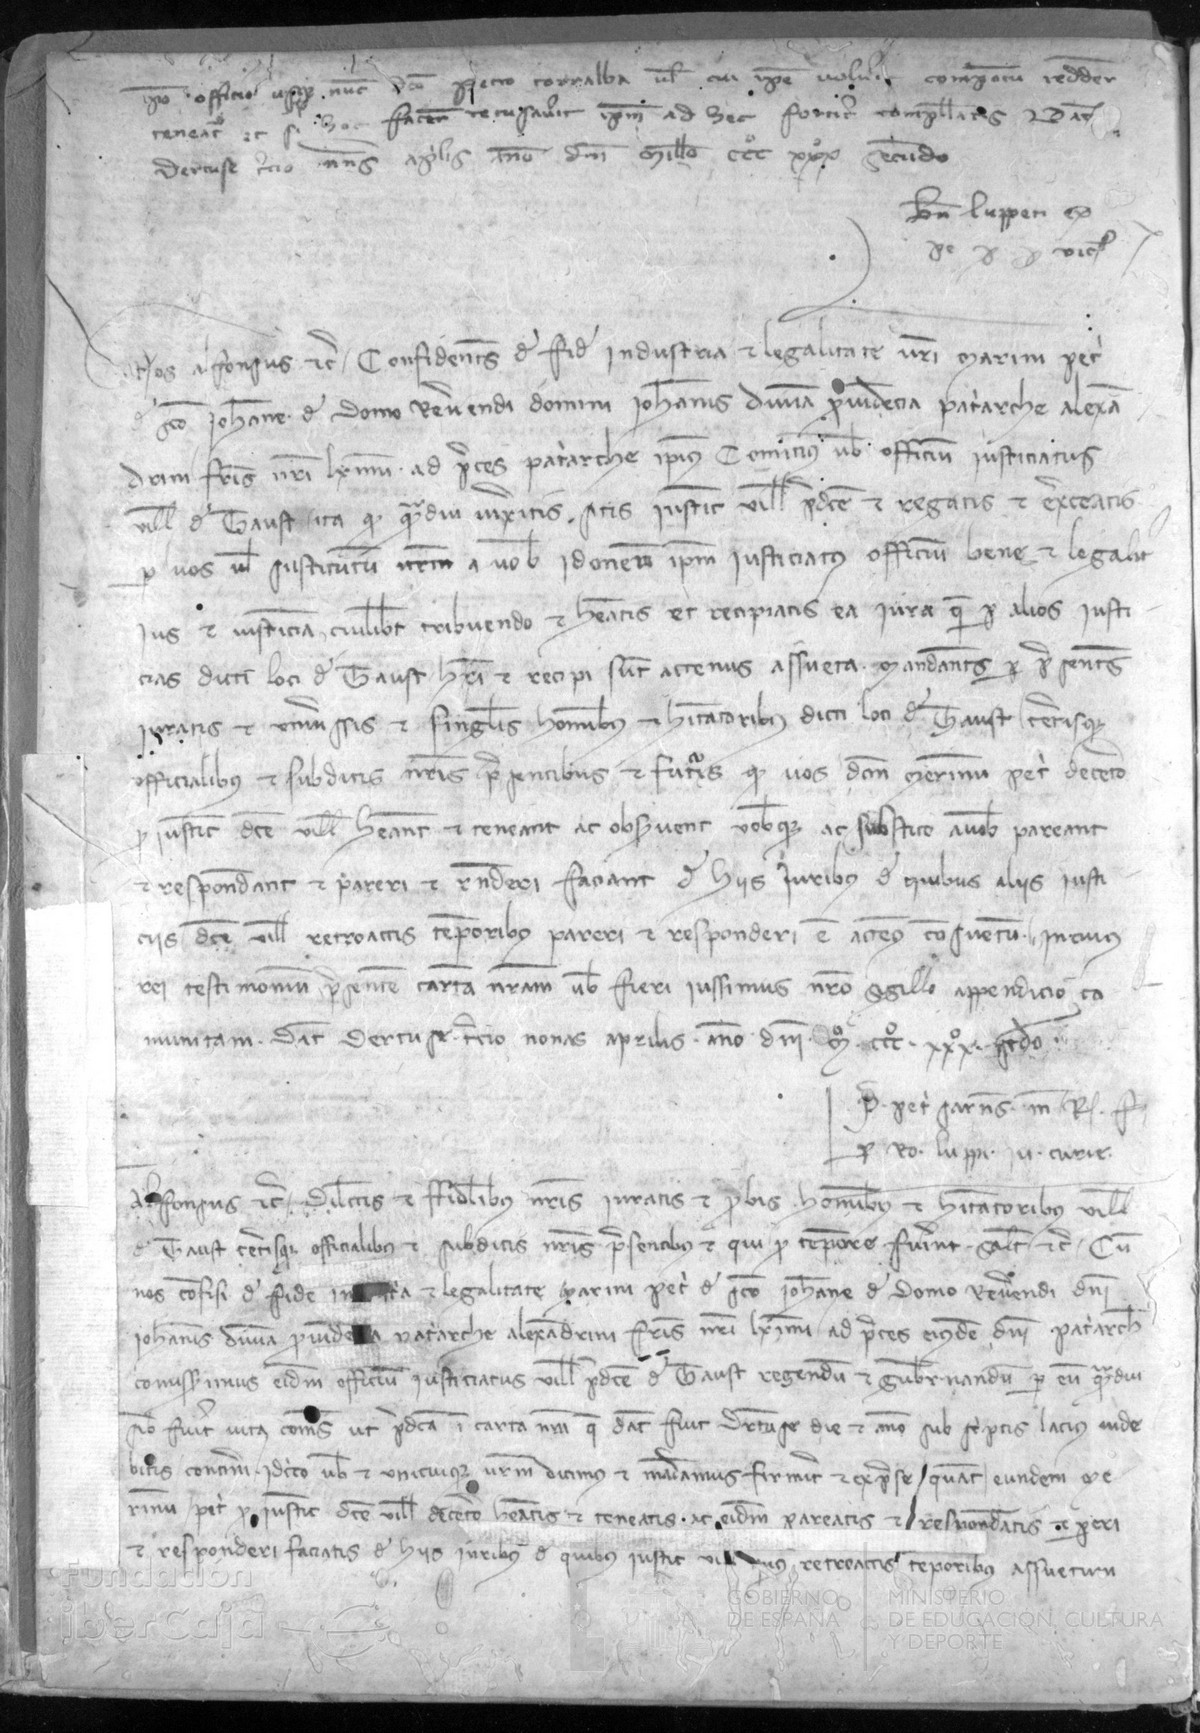 ipso officio usque nunc dco Petro torralba vl cui ipse voluit compotum redder
teneat et si hoc facere recusavit ipm ad hec fortit compellatis Dat
Dertuse tcio nns aplis anno dni Millo ccc xxx secundo
Bn luppeti ex
vic
Nos alfonsus etc Confidents de fide industria et legalitate vri Marini pet
de sco Johane de Domo Reverendi domini Johannis divina providecia patarche alexan
drini fris nri krmi ad preces patarche ipius Comitimus vob officium iusticiatus
ville de Taust ita qd quadiu vixeritis sitis iustic ville pdce et regatis et exceatis
p vos vl substitutum vrm a vob idoneum ipm iusticiatus officium bene et legalit
ius et iusticia cuilibet tribuendo et heatis et recipiatis ea iura que p alios iusti
cias dicti loci de Taust heri et recipi sunt actenus assueta Mandants p presents
iuratis et universis et singlis hominibus et hitatoribus dicti loci de Taust ceterisque
officialibus et subditis nris presentibus et futuris qd vos dcm Merinum pet decetero
p iustic dce ville heant et teneant ac observent vobque ac substito a vob pareant
et respondeant et pareri et rnderi faciant de hiis iuribus de quibus aliis iusti
ciis dce ville retroactis temporibus pareri et responderi e actenus consuetum In cuius
rei testimonium presentem cartam nram vob fieri iussimus nro sigillo appendicio co
munitam Dat Dertuse tcio nonas aprilis anno dni Mo ccco xxxo scdo
P pet garns m R f
p Ro luppi in curie
Alfonsus etc Dilectis et fidelibus nris iuratis et probis hominibus et hitatoribus ville
de Taust ceterisque officialibus et subditis nris presentibus et qui p tempore fuerint Salt etc Cum
nos confisi de fide in et legalitate Marini pet de sco Johane de Domo Reverendi dni
Johannis divina providecia patarche alexandrini fris nri krmi ad preces eiusde dni patarche
comisimus eidem officium iusticiatus ville pdce de Taust regendum et gubernandum p eum quadiu
sibi fuerit vita comes ut pdca in carta nra que dat fuit Dertuse die et anno sub scriptis lacius vide
bitis contineri Idcirco vob et unicuique vrm dicimus et mandamus firmit et expresse quat eundem Me
rinum pet p iustic dce ville decetero heatis et teneatis ac eidem pareatis et respondeatis et pareri
et responderi faciatis de hiis iuribus de quibus iustic retroactis temporibus assuetum
Fundación
iberCaja
GOBIERNO
DE ESPAÑA
MINISTERIO
DE EDUCACIÓN, CULTURA
Y DEPORTE